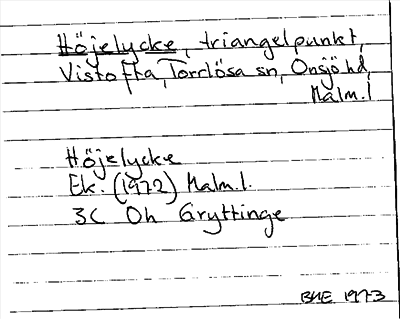 Höjelycke, triangelpunkt,
Vistofta, Torrlösa sn, Onsjö hd,
Malm.l
Höjelycke
Ek. (1972) Malm.l.
3C Oh Gryttinge
BHE 1973